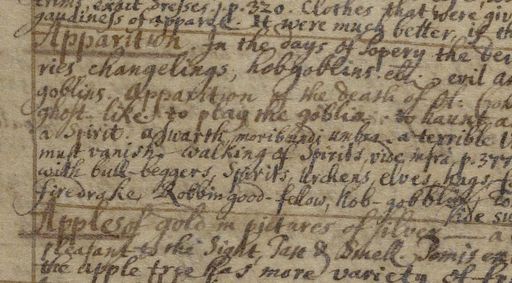 exact dresses, p. 320. Clothes that were giv
gaudiness of apparel. It were much better, if th
Apparition. In the days of Popery the
ries, changelings, hobgoblins. etc. evil a
goblins. Apparition of the death of St.
ghost-like to play the goblin. to haunt, a
a Spirit. a swarth. moribundi umbra. a terrible
must vanish. walking of Spirits, vide infra, p. 377
with bull-beggers, Spirits, Urchens, elves, hags, f
firedrake, Robbin good-fellow, hob-gobblins,
side
Apples of gold in pictures of silver
pleasant to the Sight, Tast & Smell.
the apple tree has more variety of